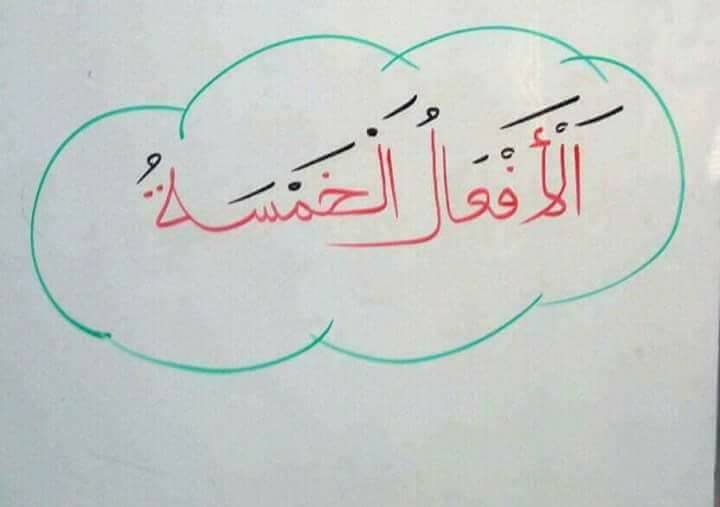 اَلْأَفْعَالُ الْخَمْسَةُ